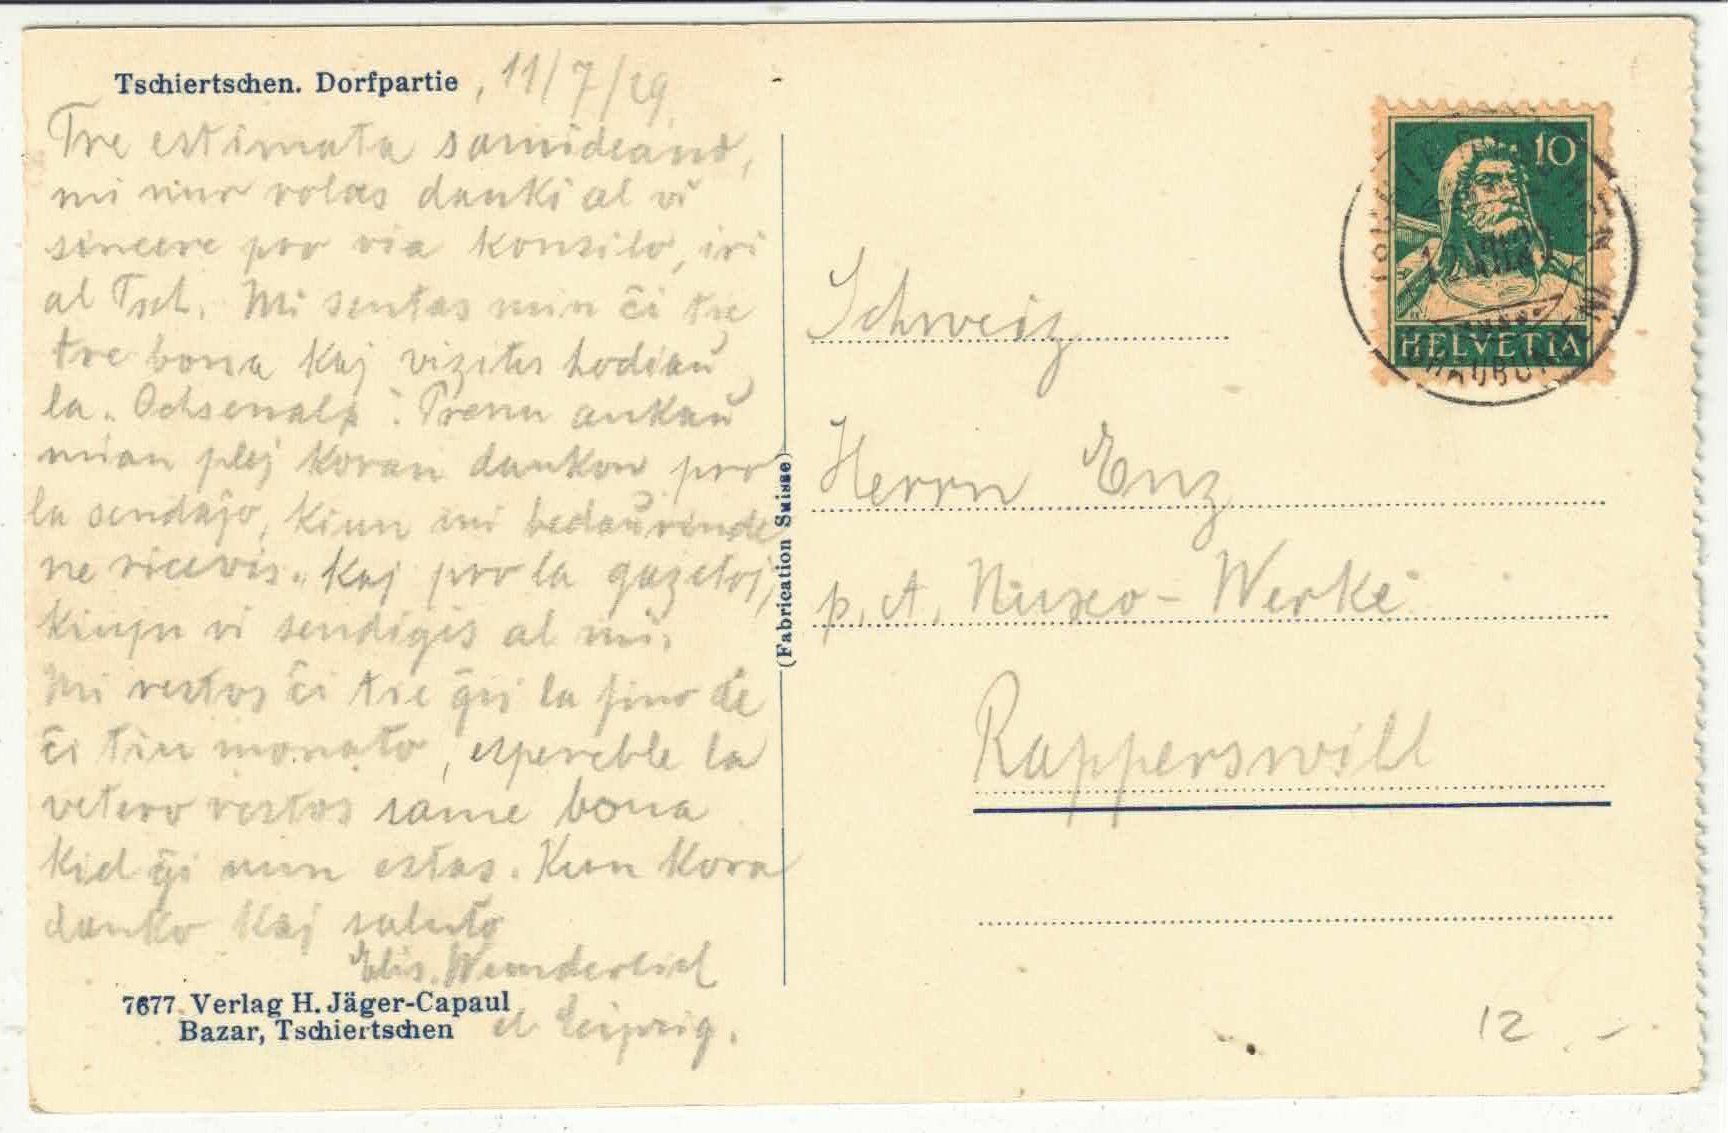 Tschiertschen. Dorfpartie, 11/7/29
Tre estimata samideano,
mi nur volas danki al vi
sincere pro via konsilo, iri
al Tsch. Mi sentas min ĉi tie
tre bona kaj vizitis hodiaŭ
la „Ochsenalp“. Prenu ankaŭ
mian plej koran dankon pro
la sendaĵo, kiun mi bedaŭrinde
ne ricevis, kaj pro la gazetoj,
kiujn vi sendigis al mi.
Mi restos ĉi tie ĝis la fino de
ĉi tiu monato, espereble la
vetero restos same bona
kiel ĝi nun estas. Kun kora
danko kaj saluto
Elis. Wunderlich
el Leipzig.
7677 Verlag H. Jäger-Capaul
Bazar, Tschiertschen
(Fabrication Suisse)
10
HELVETIA
Schweiz
Herrn Enz
p. A. Nuxo-Werke
Rapperswill
12.-